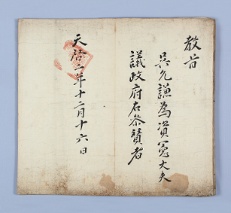 教旨
吳允謙為資憲大夫
議政府右參贊者
天啓二年十二月十六日